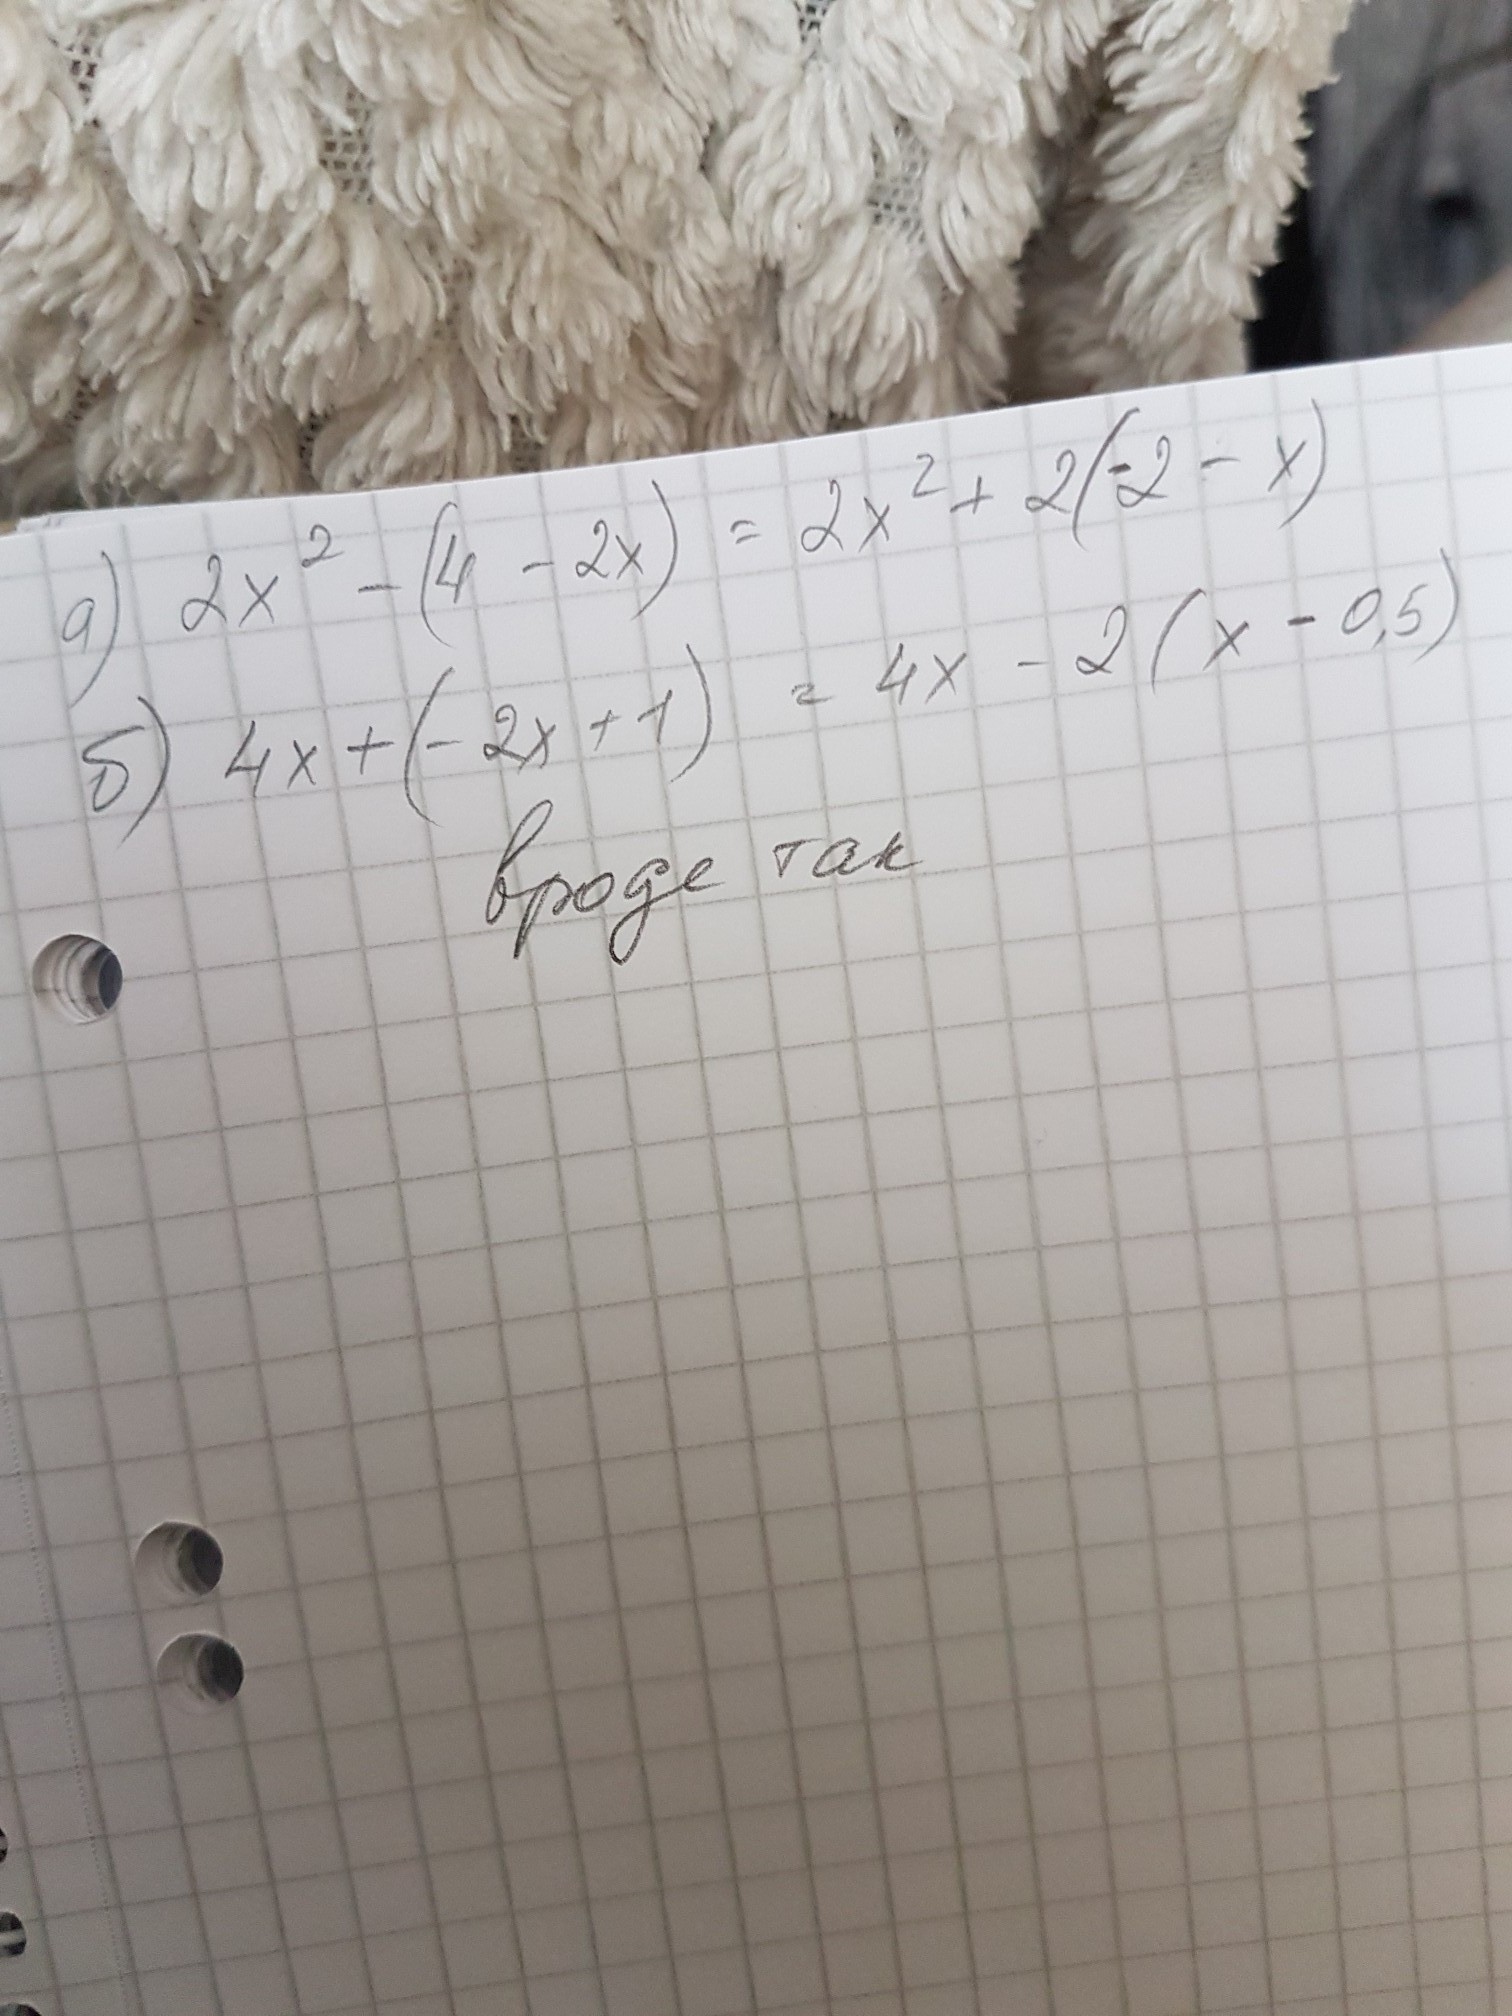 а) 2x² - (4 - 2x) = 2x² + 2(-2 - x)
б) 4x + (- 2x + 1) = 4x - 2(x - 0,5)
вроде так